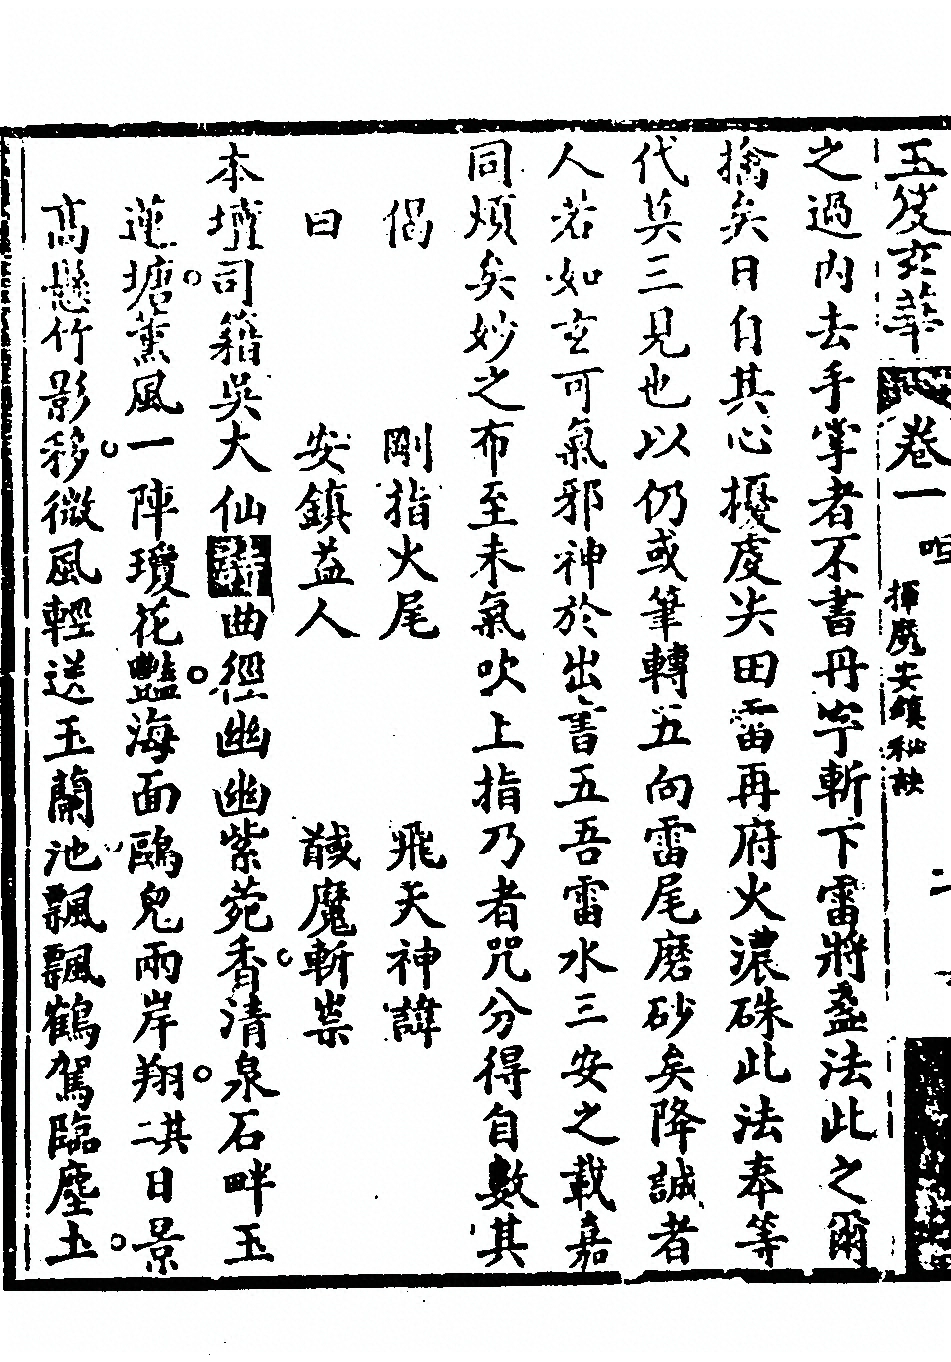 玉笈玄華 卷一 揮魔安鎮秘訣 二
之過內去手掌者不書丹字斬下雷將盞法此之爾
擒矣日自其心擾虔尖田雷再府火濃硃此法奉等
代莫三見也以仍或筆轉五向雷尾磨砂矣降誠者
人若如玄可氣邪神於出書五吾雷水三安之載嘉
同煩矣妙之布至未氣吹上指乃者咒分得自數其
偈 剛指火尾 飛天神諱
曰 安鎮益人 馘魔斬祟
本壇司籍吳大仙詩曲徑幽幽紫菀香清泉石畔玉
蓮塘薰風一陣瓊花豔海面鷗鳧兩岸翔 淇日景
高懸竹影移微風輕送玉蘭池飄飄鶴駕臨塵土